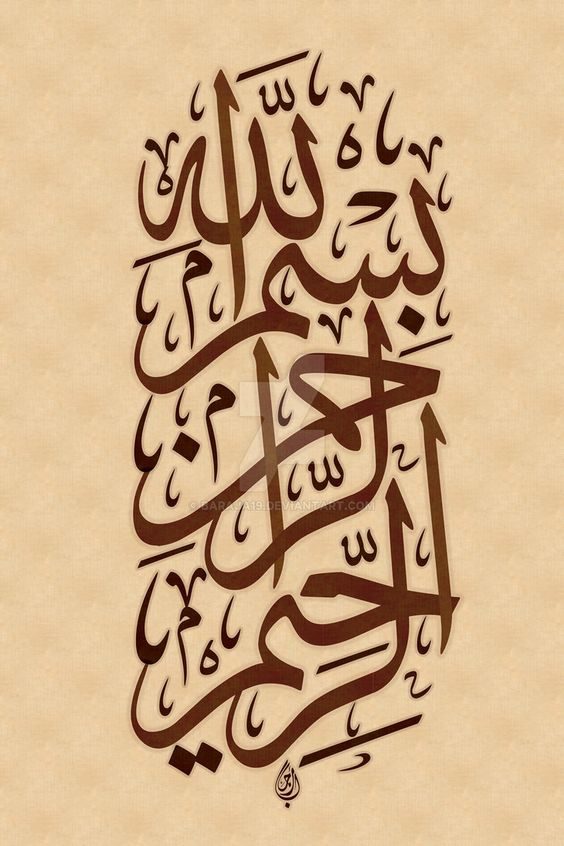 بِسْمِ اللّٰهِ
الرَّحْمٰنِ
الرَّحِيمِ
©BARAJA19.DEVIANTART.COM